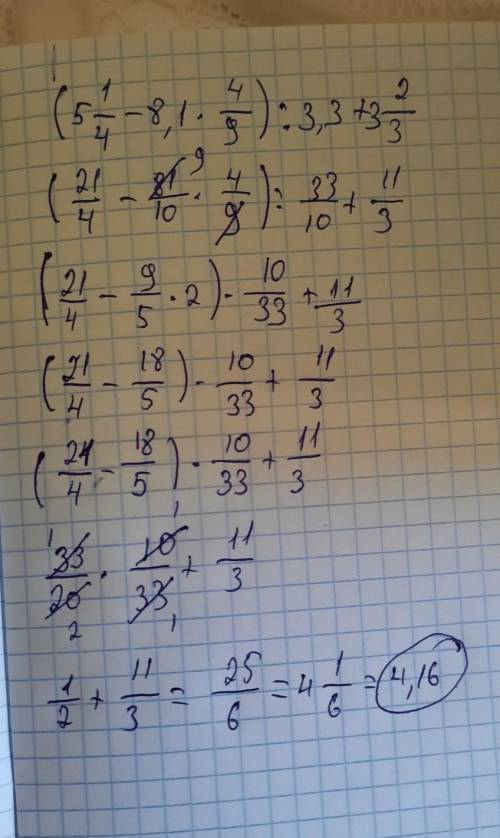 (5 1/4 − 8,1 · 4/9) : 3,3 + 3 2/3
(21/4 − 81/10 · 4/9) : 33/10 + 11/3
9
(21/4 − 9/5 · 2) · 10/33 + 11/3
(21/4 − 18/5) · 10/33 + 11/3
(21/4 − 18/5) · 10/33 + 11/3
1 1
33/20 · 10/33 + 11/3
2 1
1/2 + 11/3 = 25/6 = 4 1/6 = 4,16